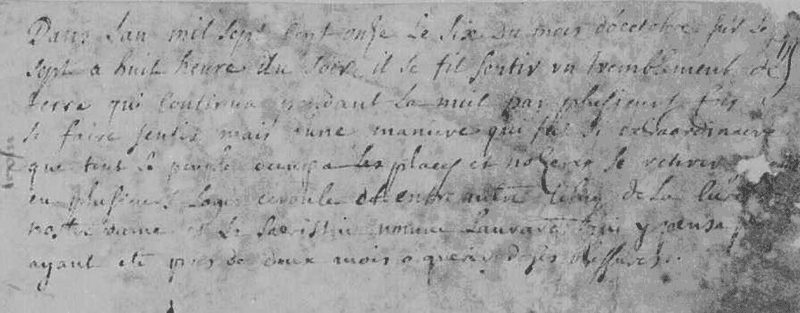 Dans lan mil sept cent onse le six du mois doctobre sur le
sept a huit heure du soir il se fit sentir un tremblement de
terre qui continua pendant la nuit par plusieurs fois
se faire sentir mais dune maniere qui fut si extraordinaire
que tout le peuple occupa les places et nozerer se retirer
en plusieurs logis croule et entre autre de la
nostre dame et le sacristin nomme y pensa
ayant ete pres de deux mois a guerir de ses blessures.